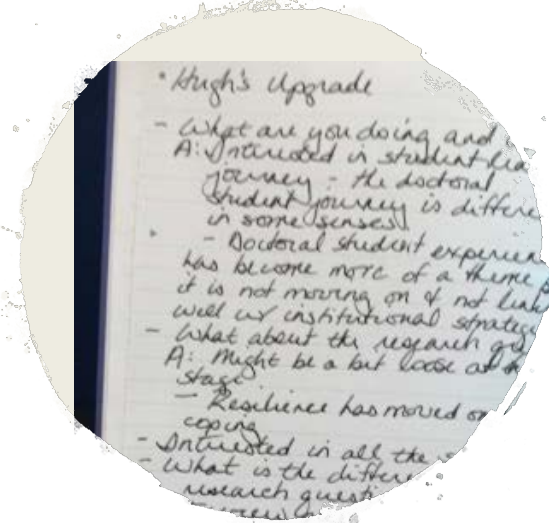 • Hugh's Upgrade
- What are you doing and
A: Interested in student
journey - the doctoral
student journey is differe
in some senses
- Doctoral student experien
has become more of a theme
it is not moving on & not link
well w/ institutional strateg
- What about the research
A: Might be a bit loose at
stage
- Resilience has moved on
coping
- Interested in all the
- What is the differe
research questi